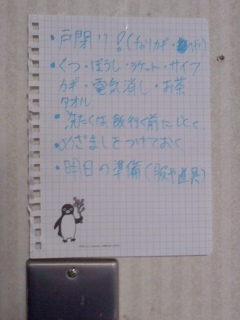 ・戸閉り!(チャリカギ・
・くつ・ぼうし・ラケット・サイフ
カギ・電気消し・お茶
タオル
・洗たくは 飯行く前に
・めざましをつけておく
・明日の準備(服や道具)